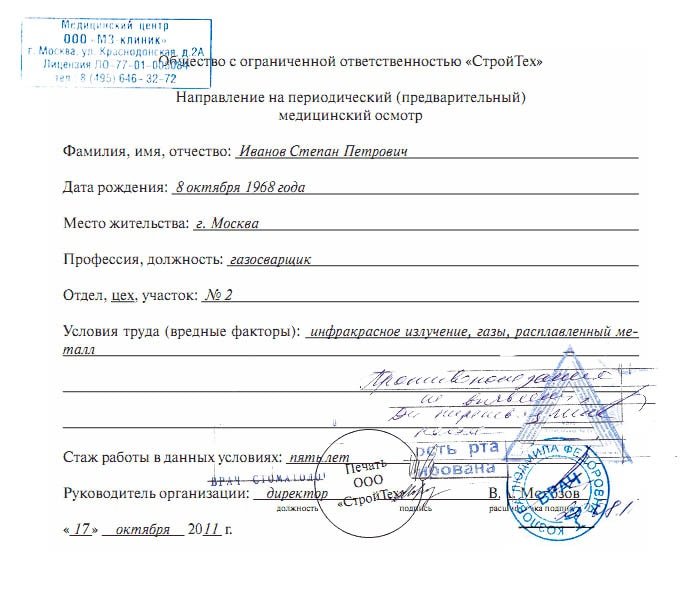 Медицинский центр
ООО «МЗ-клиник»
г. Москва, ул. Краснодонская, д.2А
Лицензия ЛО-77-01-000084
тел. 8 (495) 646-32-72
Общество с ограниченной ответственностью «СтройТех»
Направление на периодический (предварительный)
медицинский осмотр
Фамилия, имя, отчество: Иванов Степан Петрович
Дата рождения: 8 октября 1968 года
Место жительства: г. Москва
Профессия, должность: газосварщик
Отдел, цех, участок: № 2
Условия труда (вредные факторы): инфракрасное излучение, газы, расплавленный ме-
талл
Противопоказания
не выявлено
Стаж работы в данных условиях: пять лет
ВРАЧ СТОМАТОЛОГ
Печать
ООО
«СтройТех»
Руководитель организации: директор В. А. Морозов
должность подпись расшифровка подписи
КОЗЛОВА ЛЮДМИЛА ФЕДОРОВНА
ВРАЧ
«17» октября 2011 г.